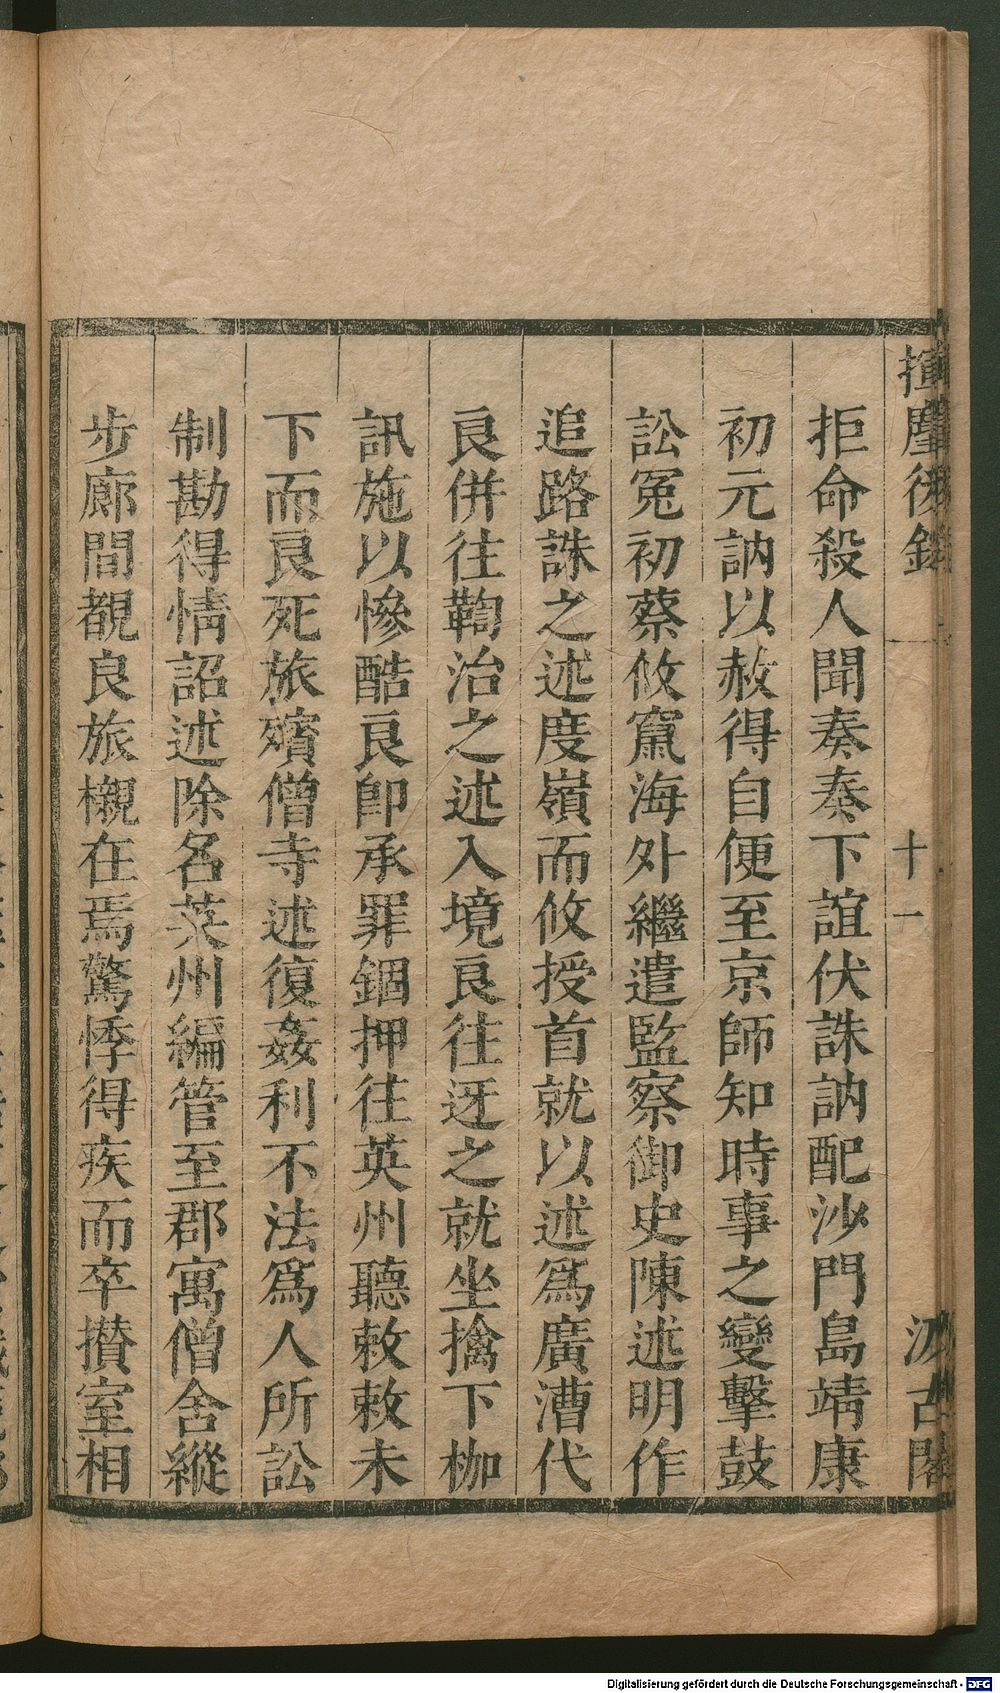 揮麈後錄
十一
汲古閣
拒命殺人聞奏奏下誼伏誅訥配沙門島靖康
初元訥以赦得自便至京師知時事之變擊鼓
訟冤初蔡攸竄海外繼遣監察御史陳述明作
追路誅之述度嶺而攸授首就以述爲廣漕代
良併往鞫治之述入境良往迓之就坐擒下枷
訊施以慘酷良卽承罪錮押往英州聽敕敕未
下而良死旅殯僧寺述復姦利不法爲人所訟
制勘得情詔述除名萊州編管至郡寓僧舍縱
步廊間覩良旅櫬在焉驚悸得疾而卒攅室相
Digitalisierung gefördert durch die Deutsche Forschungsgemeinschaft - DFG